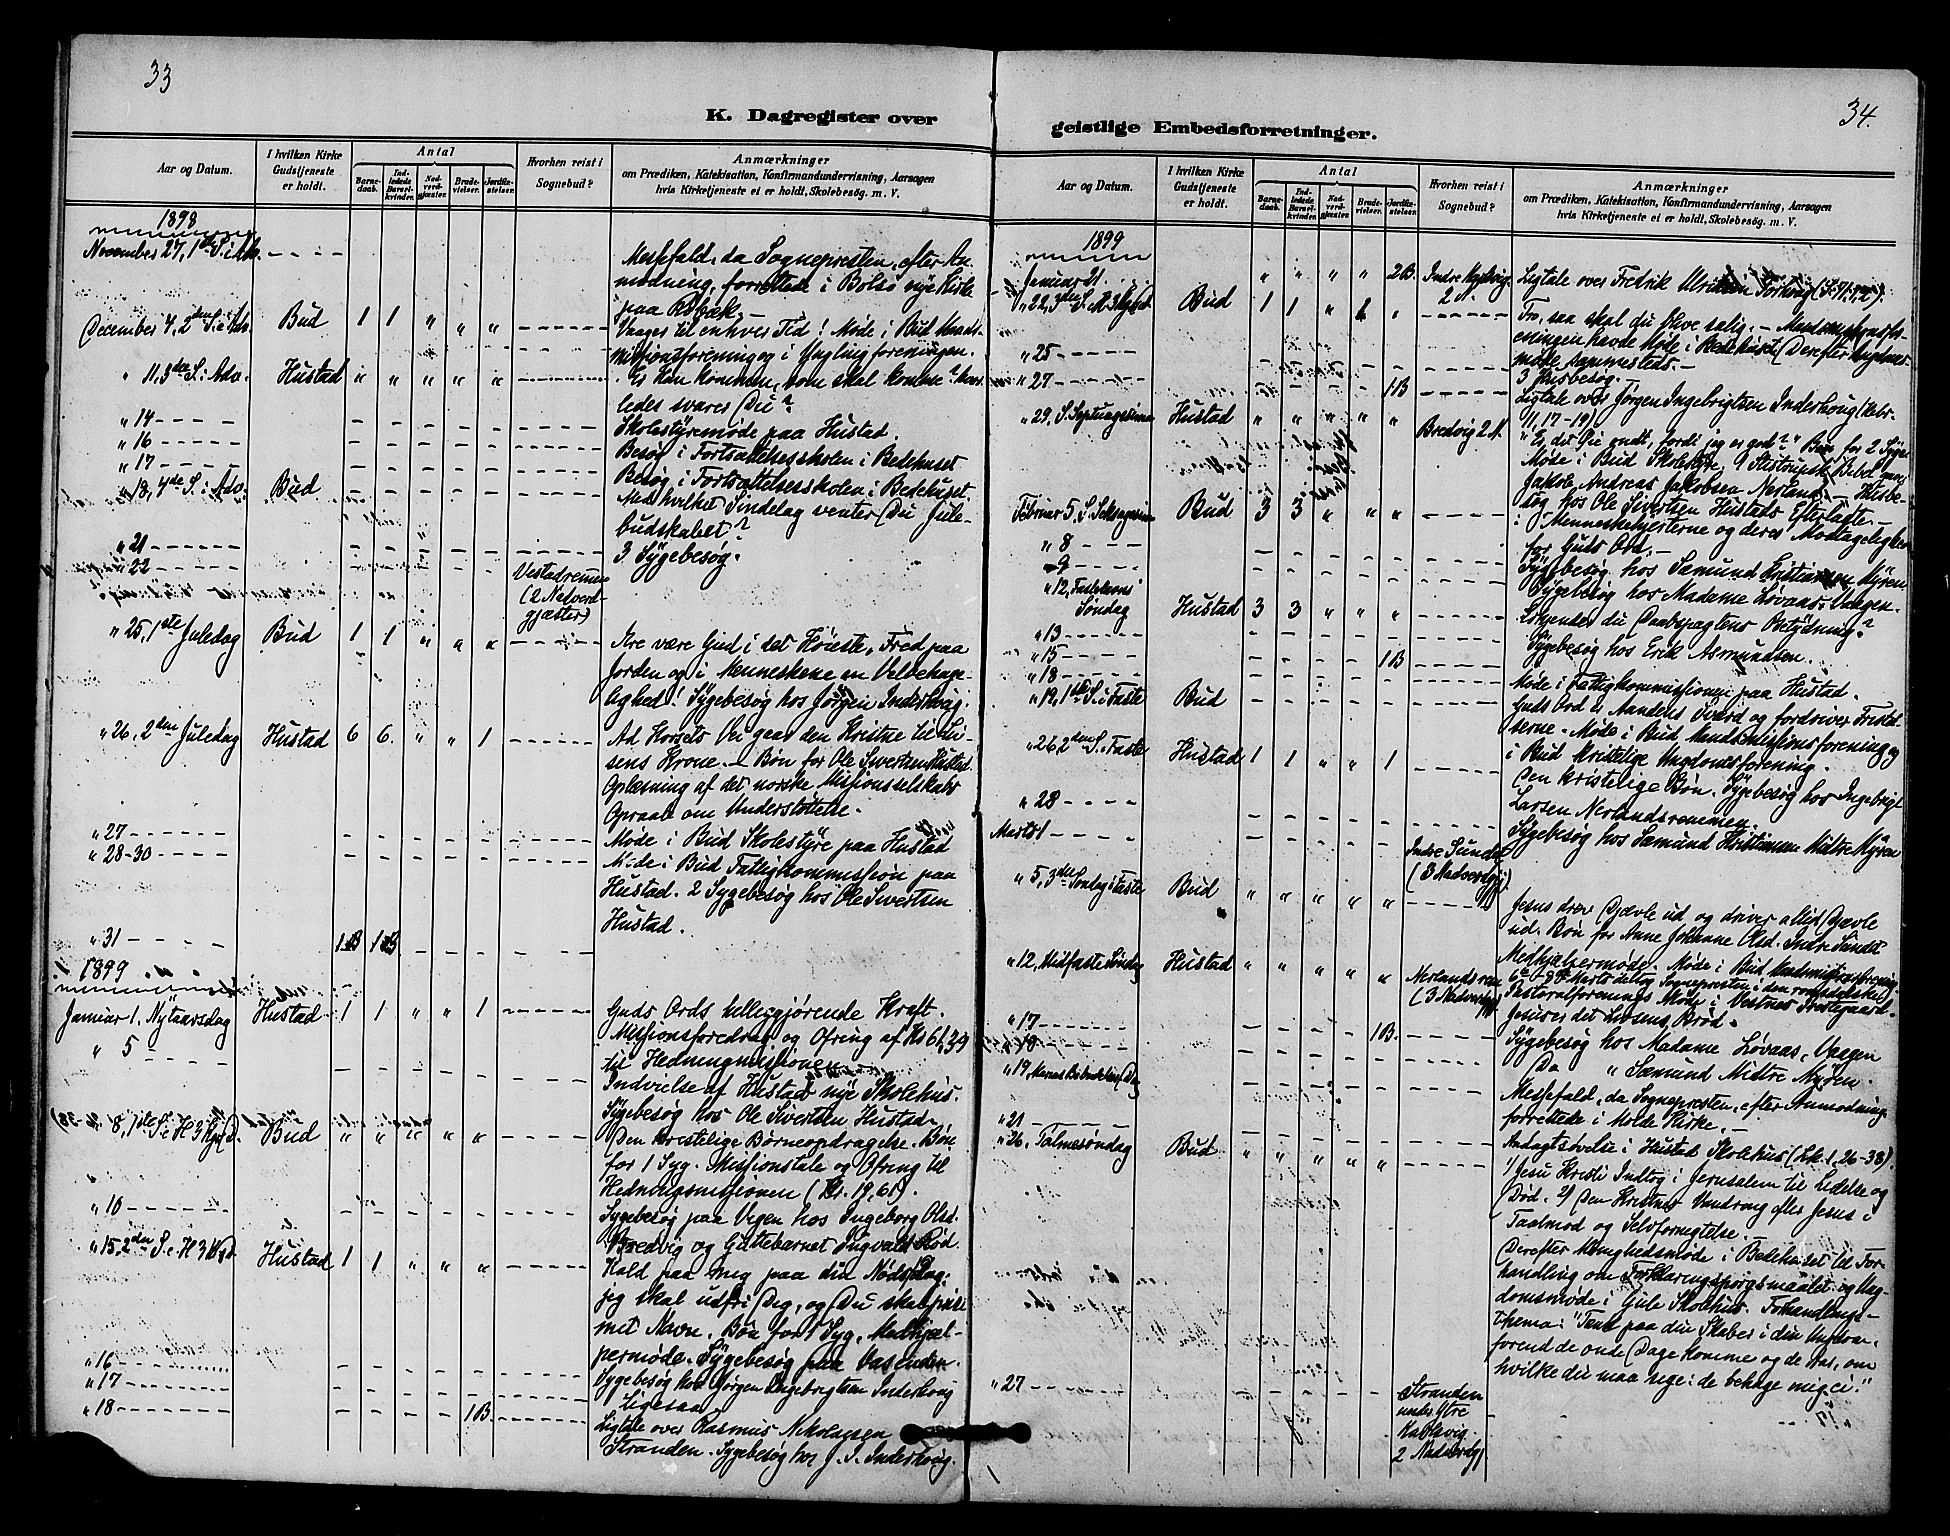 33
K. Dagregister over
Aar og Datum.
I hvilken Kirke Gudstjeneste er holdt.
Antal
Barnedaab.
Indledede Barselkvinder.
Nadverdgjæster.
Brudevielser.
Jordfæstelser.
Hvorhen reist i Sognebud?
Anmærkninger
om Prædiken, Katekisation, Konfirmandundervisning, Aarsagen
hvis Kirketjeneste ei er holdt, Skolebesøg. m. V.
1898
November 27, 1ste S. i Adv. - - - - Messefald, da Sognepresten, efter An-
modning, forrettede i Bolsø nye Kirke
paa Røbæk. -
December 4, 2den S. i Adv. Bud 1 1 " " " - - - - Vaager til enhver Tid! Møde i Bud Kvinds-
missionsforening og i Ynglingforeningen.
" 11, 3die S. i Adv. Hustad " " " " " - - - - Er Han kommen, som skal komme? hvor-
ledes svarer Du?
" 14 - - - - Skolestyremøde paa Hustad.
" 16 - - - - Besøg i Fortsættelsesskolen i Bedehuset
" 17 - - - - Besøg i Fortsættelsesskolen i Bedehuset.
" 18, 4de S. i Adv. Bud - - - - Med hvilket Sindelag venter Du Jule-
budskabet?
" 21 - - - - 3 Sygebesøg.
" 22 - - - - Vestadremmen
(2 Nadverd-
gjæster)
" 25, 1ste Juledag Bud 1 1 " " " - - - - Ære være Gud i det Høieste, Fred paa
Jorden og i Menneskene en Velbehage-
lighed! Sygebesøg hos Jørgen Inderhoug.
" 26, 2den Juledag Hustad 6 6. " " 1 - - - - Ad Korsets Vei gaar den Kristne til Li-
sens Krone. - Bøn for Ole Sivertsen Hustad.
Oplæsning af det norske Misjonsselskabs
Opraab om Understøttelse.
" 27 - - - - Møde i Bud Skolestyre paa Hustad
" 28-30 - - - - Møde i Bud Fattigkommission paa
Hustad. 2 Sygebesøg hos Ole Sivertsen
Hustad.
" 31 - - - - 1B 1B
1899
Januar 1. Nytaarsdag Hustad 1 1 " " 1 - - - - Guds Ords helliggjørende Kraft.
Missionsforedrag og Ofring af Kr 61,39
til Hedningmissionen
" 5 - - - - Indvielse af Hustad nye Skolehus.
Sygebesøg hos Ole Sivertsen Hustad.
" 8, 1ste S. e. H 3 Kg. D. Bud " " " " " - - - - Den kristelige Børneopdragelse. Bøn
for 1 Syg. Missionstale og Ofring til
Hedningmissionen (Kr. 19,61).
" 10 - - - - Sygebesøg paa Vegen hos Ingeborg Olsd.
Bredvig og Guttebarnet Ingvald Rød.
" 15, 2den S. e. H 3 Kg. D. Hustad 1 1 " " " - - - - Kald paa meg paa din Nødsdag:
jeg skal udfri Dig, og Du skal prise
mit Navn. Bøn for 1 Syg. Medhjæl-
permøde. Sygebesøg paa Vasenden.
" 16 - - - - Sygebesøg hos Jørgen Ingebrigtsen Inderhoug
" 17 - - - - Ligesaa
" 18 - - - - 1B. Ligtale over Rasmus Nikolaisen
Stranden. Sygebesøg hos J. I. Inderhoug.
34.
geistlige Embedsforretninger.
Aar og Datum.
I hvilken Kirke Gudstjeneste er holdt.
Antal
Barnedaab.
Indledede Barselkvinder.
Nadverdgjæster.
Brudevielser.
Jordfæstelser.
Hvorhen reist i Sognebud?
Anmærkninger
om Prædiken, Katekisation, Konfirmandundervisning, Aarsagen
hvis Kirketjeneste ei er holdt, Skolebesøg. m. V.
1899
Januar 21. " " " " 2B. Indre
2 N. Ligtale over Fredrik
" 22, 3die S. e. H 3 Kg. D. Bud 1 1 " 1 " - - - - Tro, saa skal du blive salig. -
eningen havde Møde i Bedehuset (Derefter
møde sammesteds. -
" 25 - - - - 3 Husbesøg.
" 27 - - - - 1B Ligtale over Jørgen Ingebrigtsen Inderhoug (Aabr.
11, 17-19)
" 29. S. Septuagesima Hustad " " " " " Bredvig 2 N. "Er det Øie ondt, fordi jeg er god?" Bøn for 2 Syge
Møde i Bud Skolestyre.
Jakob Andreas Jakobsen Nerland. - Husbe-
søg hos Ole Sivertsen Hustads Efterladte. -
Februar 5. S. Seksagesima Bud 3 3 " " " - - - - Menneskehjerterne og deres Modtagelighed
for Guds Ord. -
" 8 - - - - Sygebesøg hos Sæmund Kristiansen Myren
" 9 - - - - Sygebesøg hos Madame Lovaas, Vaagen.
" 12, Fastelavns
Søndag Hustad 3 3 " " " - - - - Kjender du Daabspagtens Betydning?
" 13 - - - - Sygebesøg hos Erik Asmundsen.
" 15 - - - - 1B
" 18 - - - - Møde i Fattigkommissionen paa Hustad.
" 19, 1ste S. i Faste Bud - - - - Guds Ord er Aandens Sværd og fordriver Frist-
serne. Møde i Bud Kvindsmissionsforening og
i Bud Kristelige Ungdomsforening.
" 26 2den S. i Faste Hustad 1 1 " " 1 - - - - Den kristelige Bøn. Sygebesøg hos Ingebrigt
Larsen Nerlandsremmen.
" 28 - - - - Sygebesøg hos Sæmund Kristiansen Midtre Myren
Marts 1 - - - - Indre Sundet
(3 Nadverdgj.)
" 5, 3die Søndag i Faste Bud " " " " " - - - - Jesus drev Djævle ud og driver altid Djævle
ud. Bøn for Anne Johanne Olsd. Indre Sundet
Medhjælpermøde. Møde i Bud Kvindsmissionsforening.
6te-8de Marts deltog Sognepresten i den romsdalske
Pastoralforenings Møde i Vestnes Prestegaard.
" 12, Midfaste Søndag Hustad " " " " " Nerlandsrem
(3 Nadverdgj.) Jesus er det Livsens Brød.
" 17 - - - - 1B. Sygebesøg hos Madame Lovaas, Vaagen
" 18 - - - - Do " Sæmund Midtre Myren.
" 19, Marias Bebudelses Dag Messefald, da Sognepresten, efter Anmodning
forrettede i Molde Kirke. -
" 21 - - - - Andagtsøvelse i Hustad Skolehus (Luk. 1, 26-38).
" 26, Palmesøndag Bud " " " " " - - - - 1/ Jesu Kristi Indtog i Jerusalem til Lidelse og
Død. 2/ Den Kristnes Vandring efter Jesus i
Taalmod og Selvfornegtelse.
Derefter Menighedsmøde i Bedehuset til For-
handling om Forklaringsspørgsmaalet og Ung-
domsmøde i Gule Skolehus. Forhandlings-
thema: "Tænk paa din Skaber i din Ungdom,
førend de onde Dage komme og de Aar, om
hvilke du maa sige: de behage mig ei."
" 27 - - - - Stranden
under Ytre
Harhavig
2 Nadverdgj.